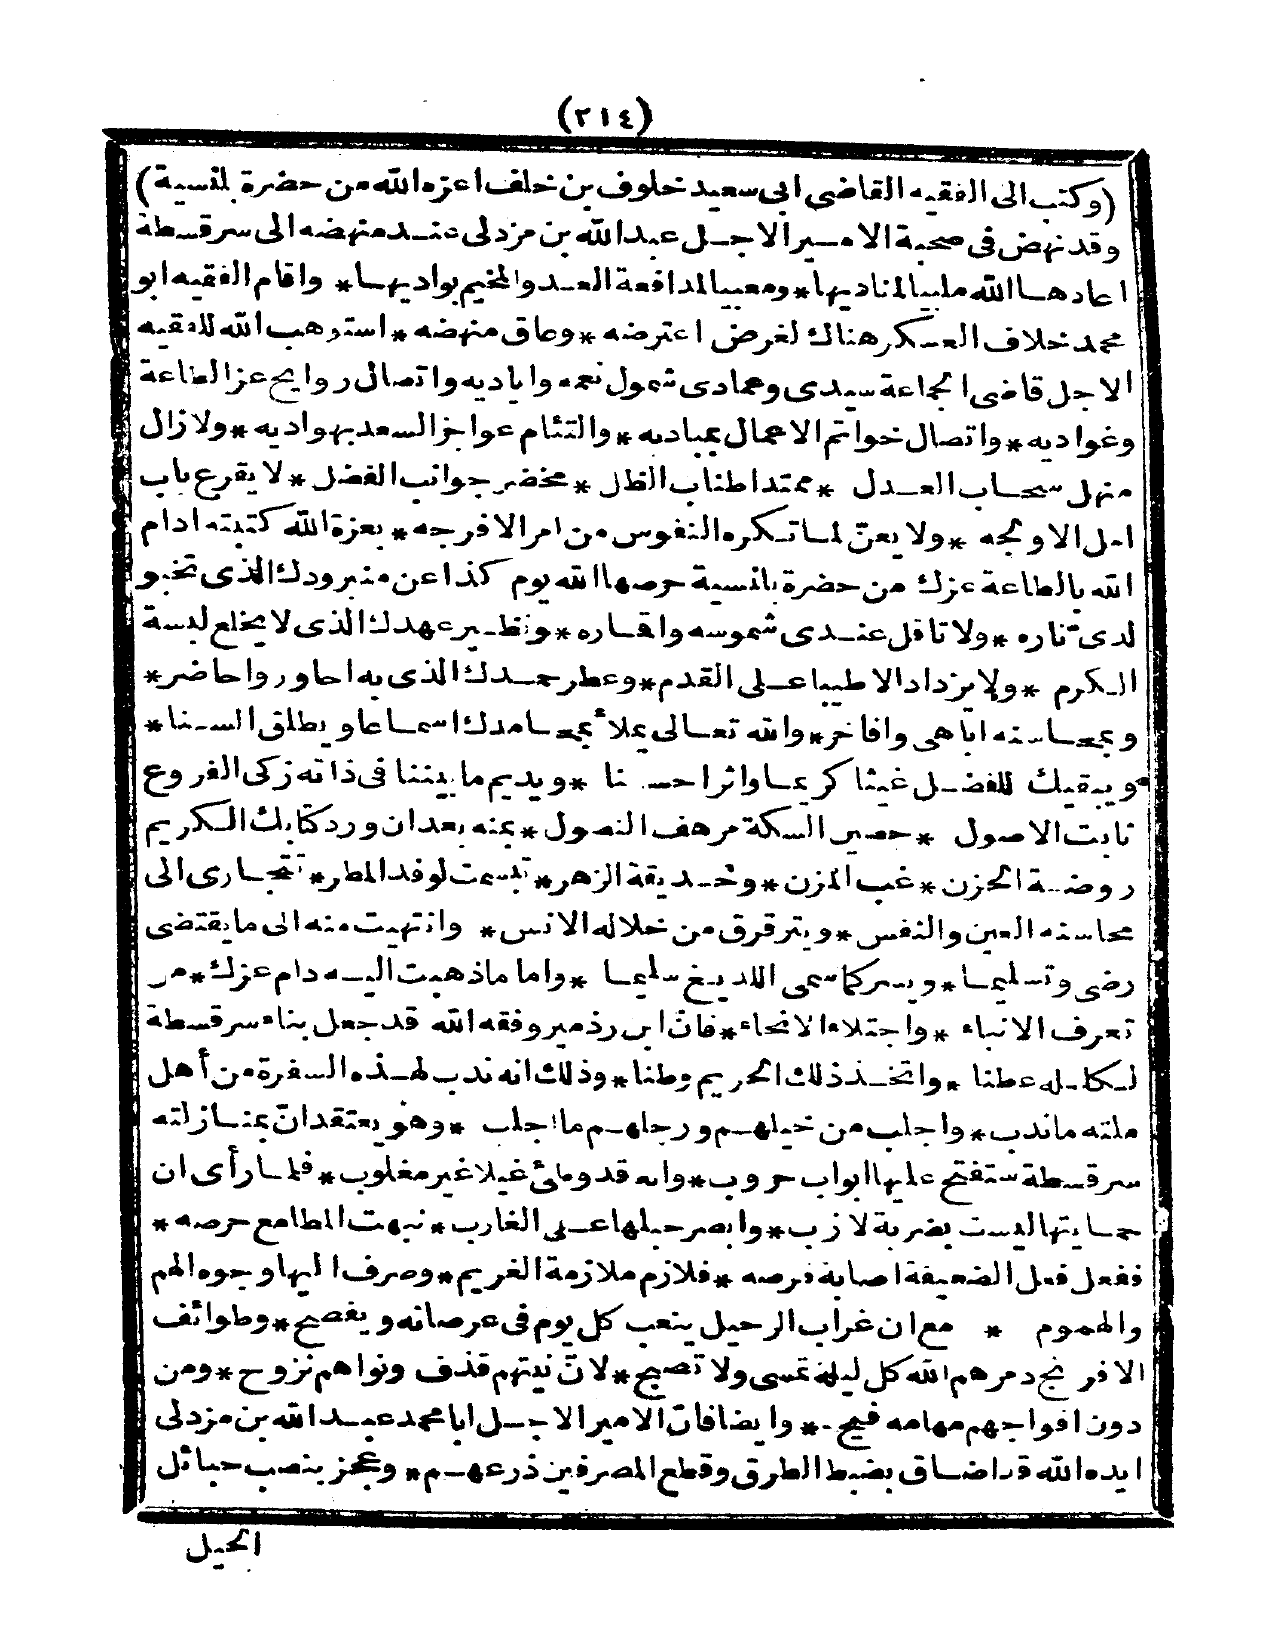 (٢١٤)
(وكتب الى الفقيه القاضى ابى سعيد خلوف بن خلف اعزه الله من حضرة بلنسية)
وقد نهض فى صحبة الامير الاجل عبد الله بن مزدلى عند منهضه الى سرقسطة
اعادها الله ملبيا لمناديها* ومعينا لمدافعة العدو المخيم بواديها* واقام الفقيه ابو
محمد خلاف العسكر هناك لغرض اعترضه *وعاق منهضه *استوهب الله للفقيه
الاجل قاضى الجماعة سيدى وعمادى شمول نعمه واياديه واتصال روايح عز الطاعة
وغواديه *واتصال خواتم الاعمال بمباديه *والتئام عواجز السعد بهواديه *ولازال
منهل سحاب العدل *ممتد اطناب الظل *مخضر جوانب الفضل *لا يقرع باب
امل الا ولجه *ولا يعنّ لما تكره النفوس من امر الا فرجه* بعزة الله كتبته ادام
الله بالطاعة عزك من حضرة بلنسية حرصها الله يوم كذا عن منبر ودك الذى تخبو
لدىّ ناره *ولا تافل عندى شموسه واقماره *ونظير عهدك الذى لا يخلع لبسة
الكرم *ولا يزداد الا طيبا على القدم *وعطر حمدك الذى به احاور واحاضر*
وبمحاسنه اباهى وافاخر* والله تعالى يملأ بمحامدك اسماعا ويطلق السنا*
ويبقيك للفضل غيثا كريما واثرا حسنا *ويديم ما بيننا فى ذاته زكى الفروع
ثابت الاصول *حصين السكة مرهف النصول *بمنه بعد ان ورد كتابك الكريم
روضة الحزن *غب المزن *وحديقة الزهر* تبسمت لوفد المطر* تتجارى الى
محاسنه العين والنفس *ويترقرق من خلاله الانس* وانتهيت منه الى ما يقتضى
رضى وتسليما *ويسر كما سمى اللديغ سليما *واما ما ذهبت اليه دام عزك *من
تعرف الانباء *واجتلاء الانحاء* فانّ ابن رذمير وفقه الله قد جعل بناء سرقسطة
لكلكله عطنا *واتخذ ذلك الحريم وطنا* وذلك انه ندب لهذه السفرة من أهل
ملته ما ندب* واجلب من خيلهم ورجلهم ما اجلب *وهو يعتقد انّ بمنازلته
سرقسطة ستفتح عليها ابواب حروب* وانه قد وطئ غيلا غير مغلوب *فلما رأى ان
حمايتها ليست بضربة لازب* وابصر حبلها على الغارب* نبهت المطامع حرصه*
ففعل فعل الضعيفة اصابة فرصه *فلازم ملازمة الغريم* وصرف اليها وجوه الهم
والهموم * مع ان غراب الرحيل ينعب كل يوم فى عرصاته ويفصح* وطوائف
الافرنج دمرهم الله كل ليلة تمسى ولا تصبح* لانّ نيتهم قذف ونواهم نزوح *ومن
دون افواجهم مهامه فيح *وايضا فانّ الامير الاجل ابا محمد عبد الله بن مزدلى
ايده الله قد اضاق بضبط الطرق وقطع المصرفين ذرعهم* وعجز بنصب حبائل
الحيل